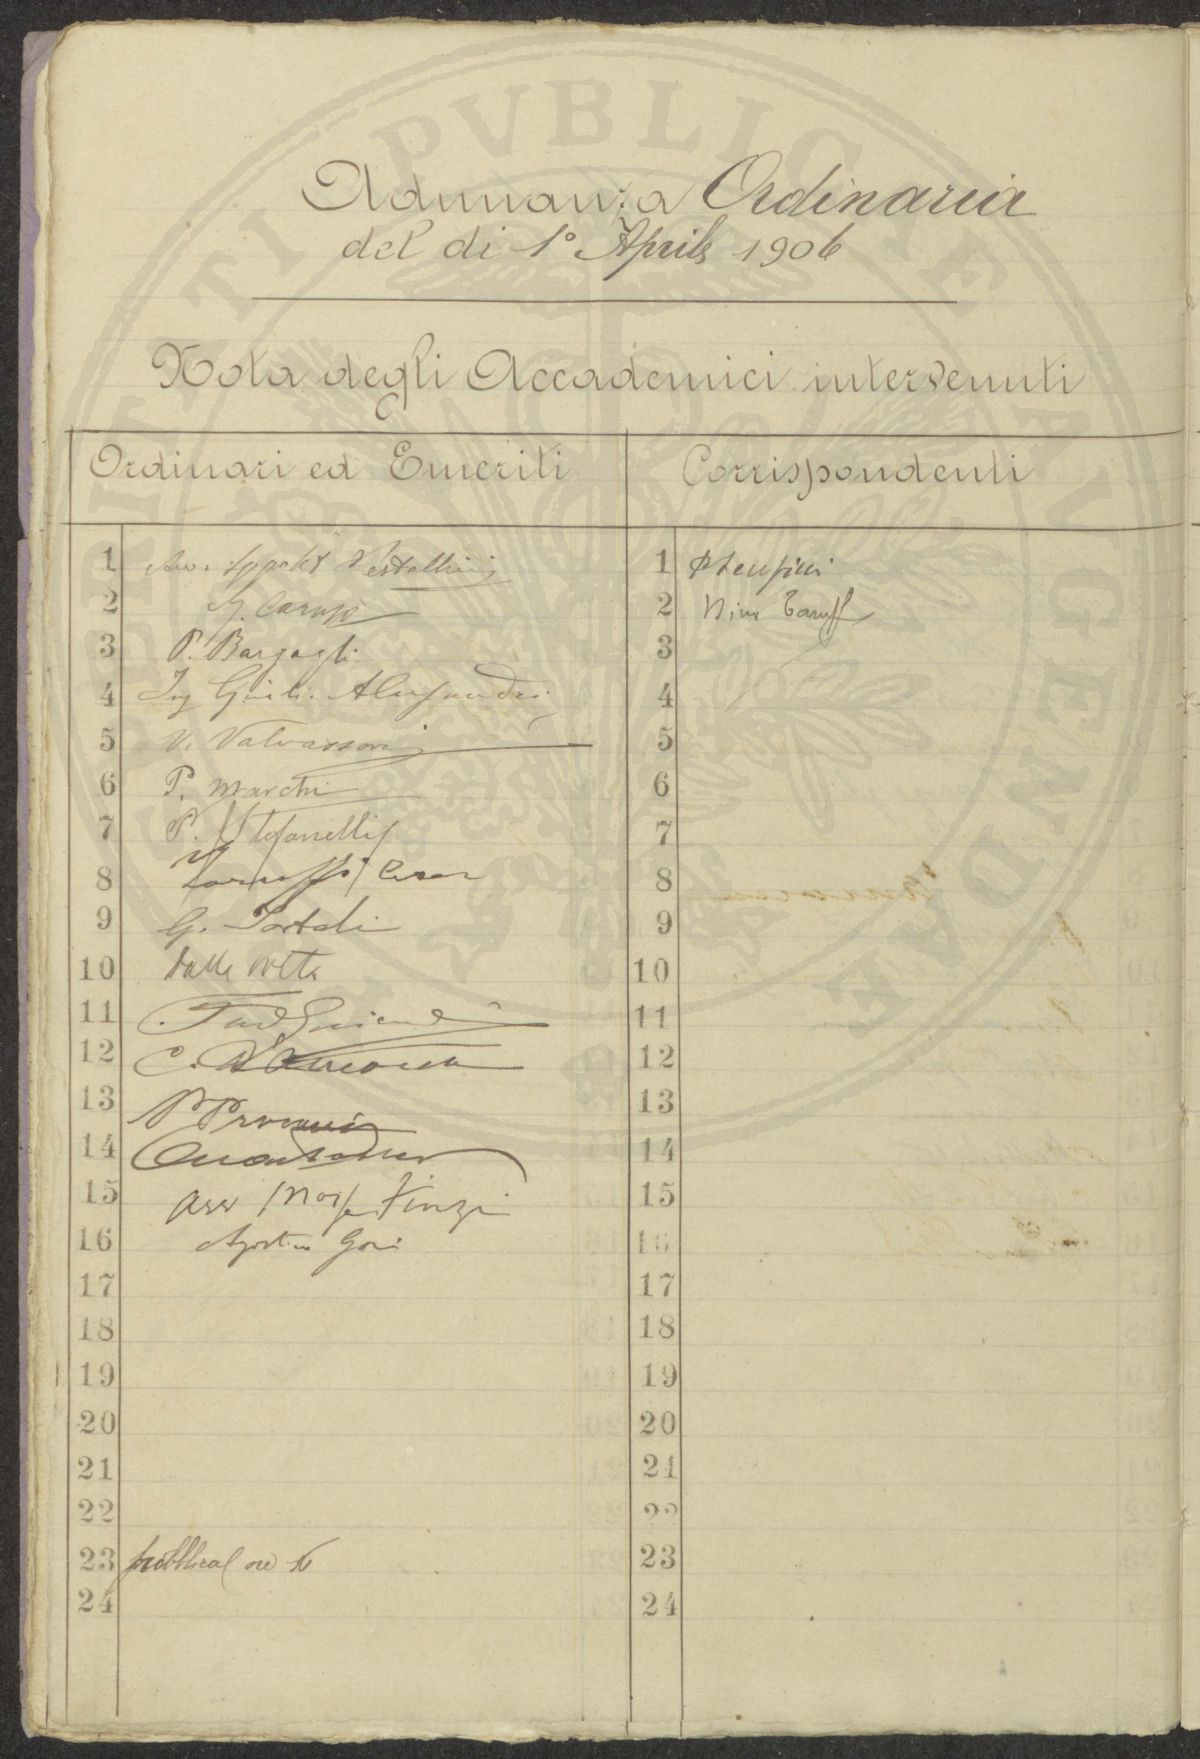 PROSPERITATI PVBLICAE AVGENDAE
Adunanza Ordinaria
del dì 1º Aprile 1906
Nota degli Accademici intervenuti
Ordinari ed Emeriti
Corrispondenti
1 Avv. Ippolito Pestellini
2 G. Caruso
3 P. Bargagli
4 Ing Giulio Alessandri
5 V. Valvassori
6 P. Marchi
7 P. Stefanelli
8 Cesare
9 G. Portoli
10 Dalle Volte
11
12 C. D'Ancona
13
14
15 Avv Finzi
16 Agostino Gori
17
18
19
20
21
22
23 pubblica ore 16
24
1
2 Nino Taruffi
3
4
5
6
7
8
9
10
11
12
13
14
15
16
17
18
19
20
21
22
23
24